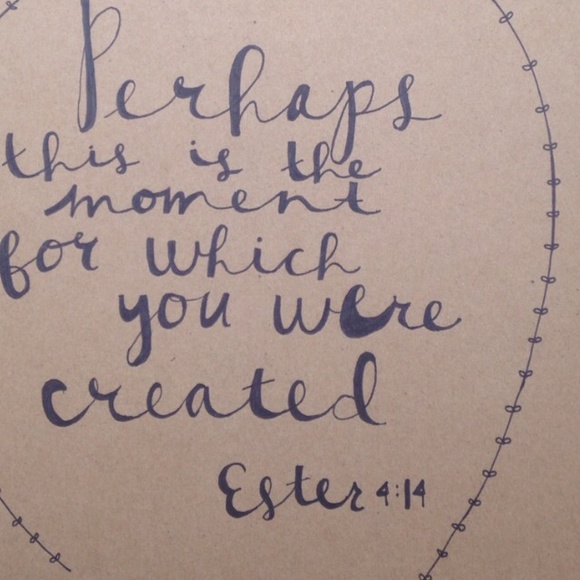 Perhaps
this is the
moment
for which
you were
created
Ester 4:14